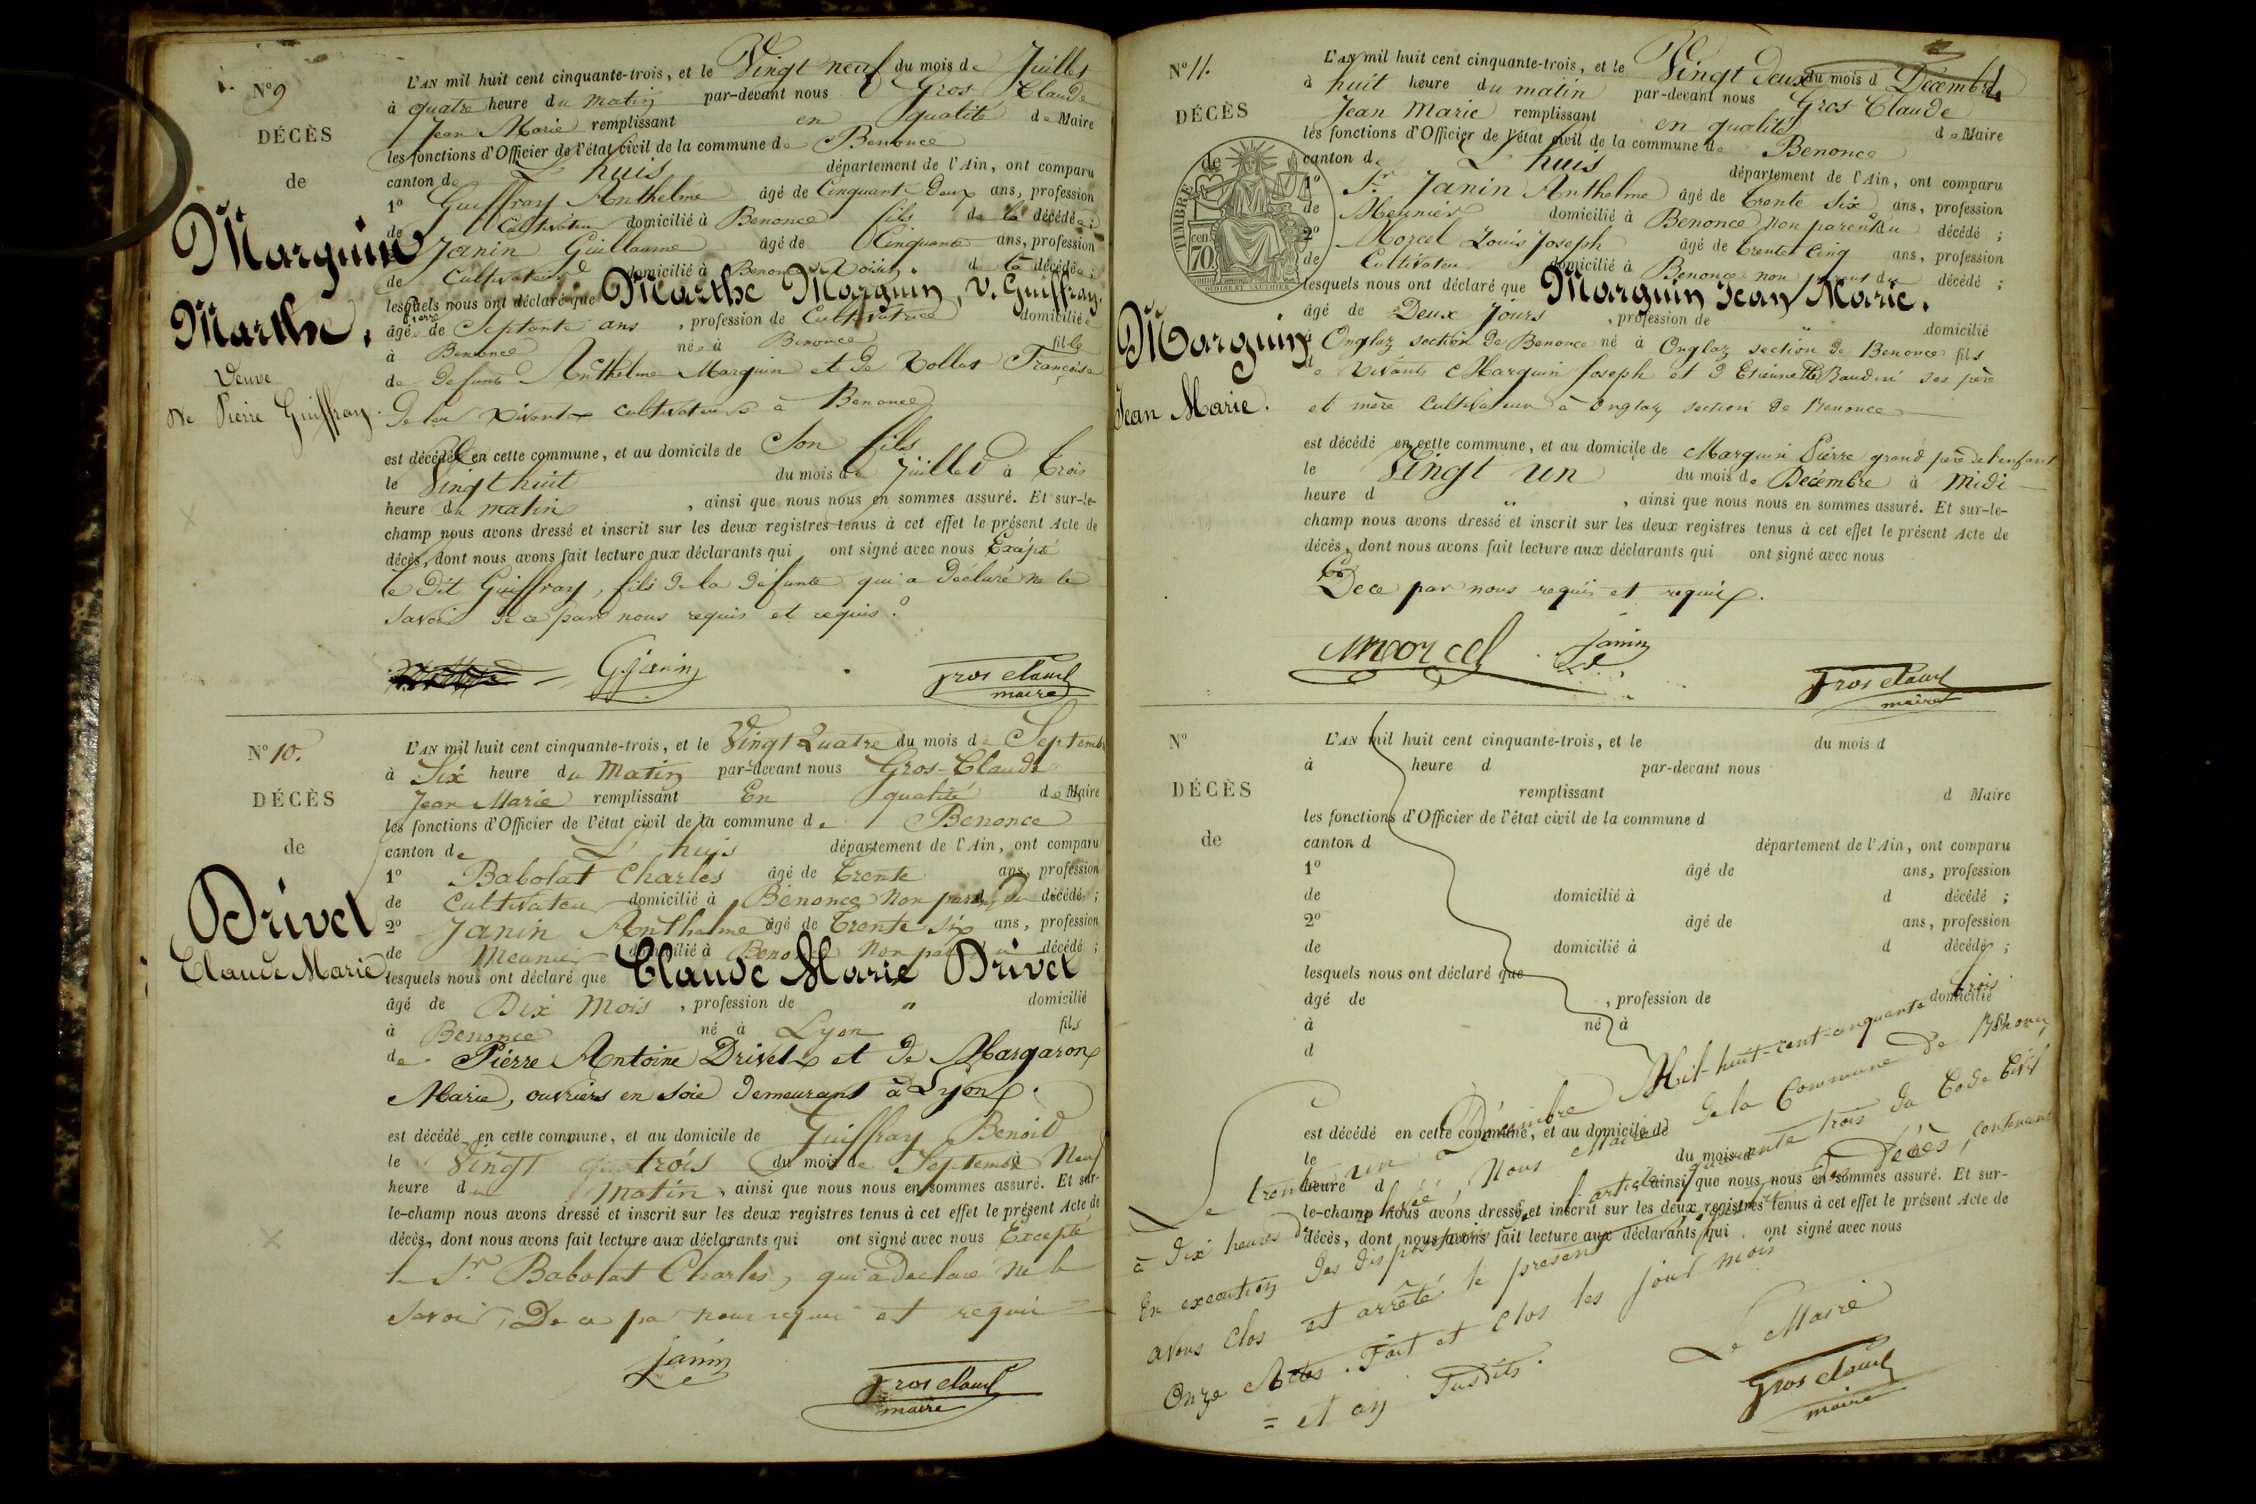 N° 9
DÉCÈS
de
Marguin
Marthe.
Veuve
De Pierre Guiffray.
L'AN mil huit cent cinquante-trois, et le Vingt neuf du mois de Juillet
à quatre heure du matin par-devant nous Gros Claude
Jean Marie remplissant en qualité de Maire
les fonctions d'Officier de l'état civil de la commune de Benonce
canton de L'huis département de l'Ain, ont comparu
1° Guiffray Anthelme âgé de Cinquante Deux ans, profession
de Cultivateur domicilié à Benonce fils de la décédée;
Janin Guillaume âgé de Cinquante ans, profession
de Cultivateur domicilié à Benonce Voisin de la décédée;
lesquels nous ont déclaré que Marthe Marguin, V. Guiffray.
Pierre
âgée de Septante ans, profession de Cultivatrice domiciliée
à Benonce née à Benonce fille
de defunt Anthelme Marguin et de Vollet Françoise
de leur Vivant cultivateurs à Benonce
est décédée en cette commune, et au domicile de Son fils
le Vingt huit du mois de Juillet à Trois
heure du matin, ainsi que nous nous en sommes assuré. Et sur-le-
champ nous avons dressé et inscrit sur les deux registres tenus à cet effet le présent Acte de
décès, dont nous avons fait lecture aux déclarants qui ont signé avec nous Excépté
le dit Guiffray, fils de la défunte qui a déclaré ne le
savoir de ce par nous requis et requis.
G Janin
Gros claude
maire
N° 10.
DÉCÈS
de
Drivet
Claude Marie
L'AN mil huit cent cinquante-trois, et le Vingt Quatre du mois de Septembre
à Six heure du Matin par-devant nous Gros-Claude
Jean Marie remplissant En qualité de Maire
les fonctions d'Officier de l'état civil de la commune de Benonce
canton de L'huis département de l'Ain, ont comparu
1° Babolat Charles âgé de Trente ans, profession
de Cultivateur domicilié à Benonce Non parent du décédé;
2° Janin Anthelme âgé de Trente six ans, profession
de Meunier domicilié à Benonce Non parent du décédé;
lesquels nous ont déclaré que Claude Marie Drivet
âgé de Dix Mois, profession de " domicilié
à Benonce né à Lyon fils
de Piérre Antoine Drivet et de Margaron
Marie, ouvriers en soie demeurant à Lyon.
est décédé en cette commune, et au domicile de Guiffray Benoit
le Vingt trois du mois de Septembre à Neuf
heure du Matin, ainsi que nous nous en sommes assuré. Et sur-
le-champ nous avons dressé et inscrit sur les deux registres tenus à cet effet le présent Acte de
décès, dont nous avons fait lecture aux déclarants qui ont signé avec nous Excepté
le Sr Babolat Charles, qui a declaré ne le
savoir, De ce par nous requis et requis
Janin
Gros claude
maire
N° 11.
DÉCÈS
de
TIMBRE
cen
70
Marguin
Jean Marie.
L'AN mil huit cent cinquante-trois, et le Vingt Deux du mois d Décembre
à huit heure du matin par-devant nous Gros Claude
Jean Marie remplissant en qualité de Maire
les fonctions d'Officier de l'état civil de la commune de Benonce
canton de L'huis département de l'Ain, ont comparu
1° Sr Janin Anthelme âgé de Trente Six ans, profession
de Meunier domicilié à Benonce non parent du décédé;
2° Morcel Louis Joseph âgé de Trente Cinq ans, profession
de Cultivateur domicilié à Benonce non parent du décédé;
lesquels nous ont déclaré que Marguin Jean Marie.
âgé de Deux Jours, profession de " domicilié
à Onglaz section de Benonce né à Onglaz section de Benonce fils
de Vivants Marguin Joseph et d'Etiennette Baudin ses père
et mère Cultivateurs à Onglaz section de Benonce
est décédé en cette commune, et au domicile de Marguin Pierre grand père de l'enfant
le Vingt un du mois de Décembre à Midi
heure d ", ainsi que nous nous en sommes assuré. Et sur-le-
champ nous avons dressé et inscrit sur les deux registres tenus à cet effet le présent Acte de
décès, dont nous avons fait lecture aux déclarants qui ont signé avec nous
De ce par nous requis et requis.
Morcel
Janin
Gros claude
maire
N°
DÉCÈS
de
L'AN mil huit cent cinquante-trois, et le du mois d
à heure d par-devant nous
remplissant d Maire
les fonctions d'Officier de l'état civil de la commune d
canton d département de l'Ain, ont comparu
1° âgé de ans, profession
de domicilié à d décédé;
2° âgé de ans, profession
de domicilié à d décédé;
lesquels nous ont déclaré que
âgé de, profession de domicilié
à né à
d
est décédé en cette commune, et au domicile de
le du mois d
heure d ainsi que nous nous en sommes assuré. Et sur-
le-champ nous avons dressé et inscrit sur les deux registres tenus à cet effet le présent Acte de
décès, dont nous avons fait lecture aux déclarants qui ont signé avec nous
Le trente un Décembre Mil-huit-cent-cinquante trois
à dix heures nous Maire de la Commune de Bénonce,
En execution des dispositions de l'article quarante trois du Code Civil
avons clos et arrêté le présent registre des Décès, contenant
Onze Actes. Fait et clos les jour mois
= et an susdits.
Le Maire
Gros claude
maire